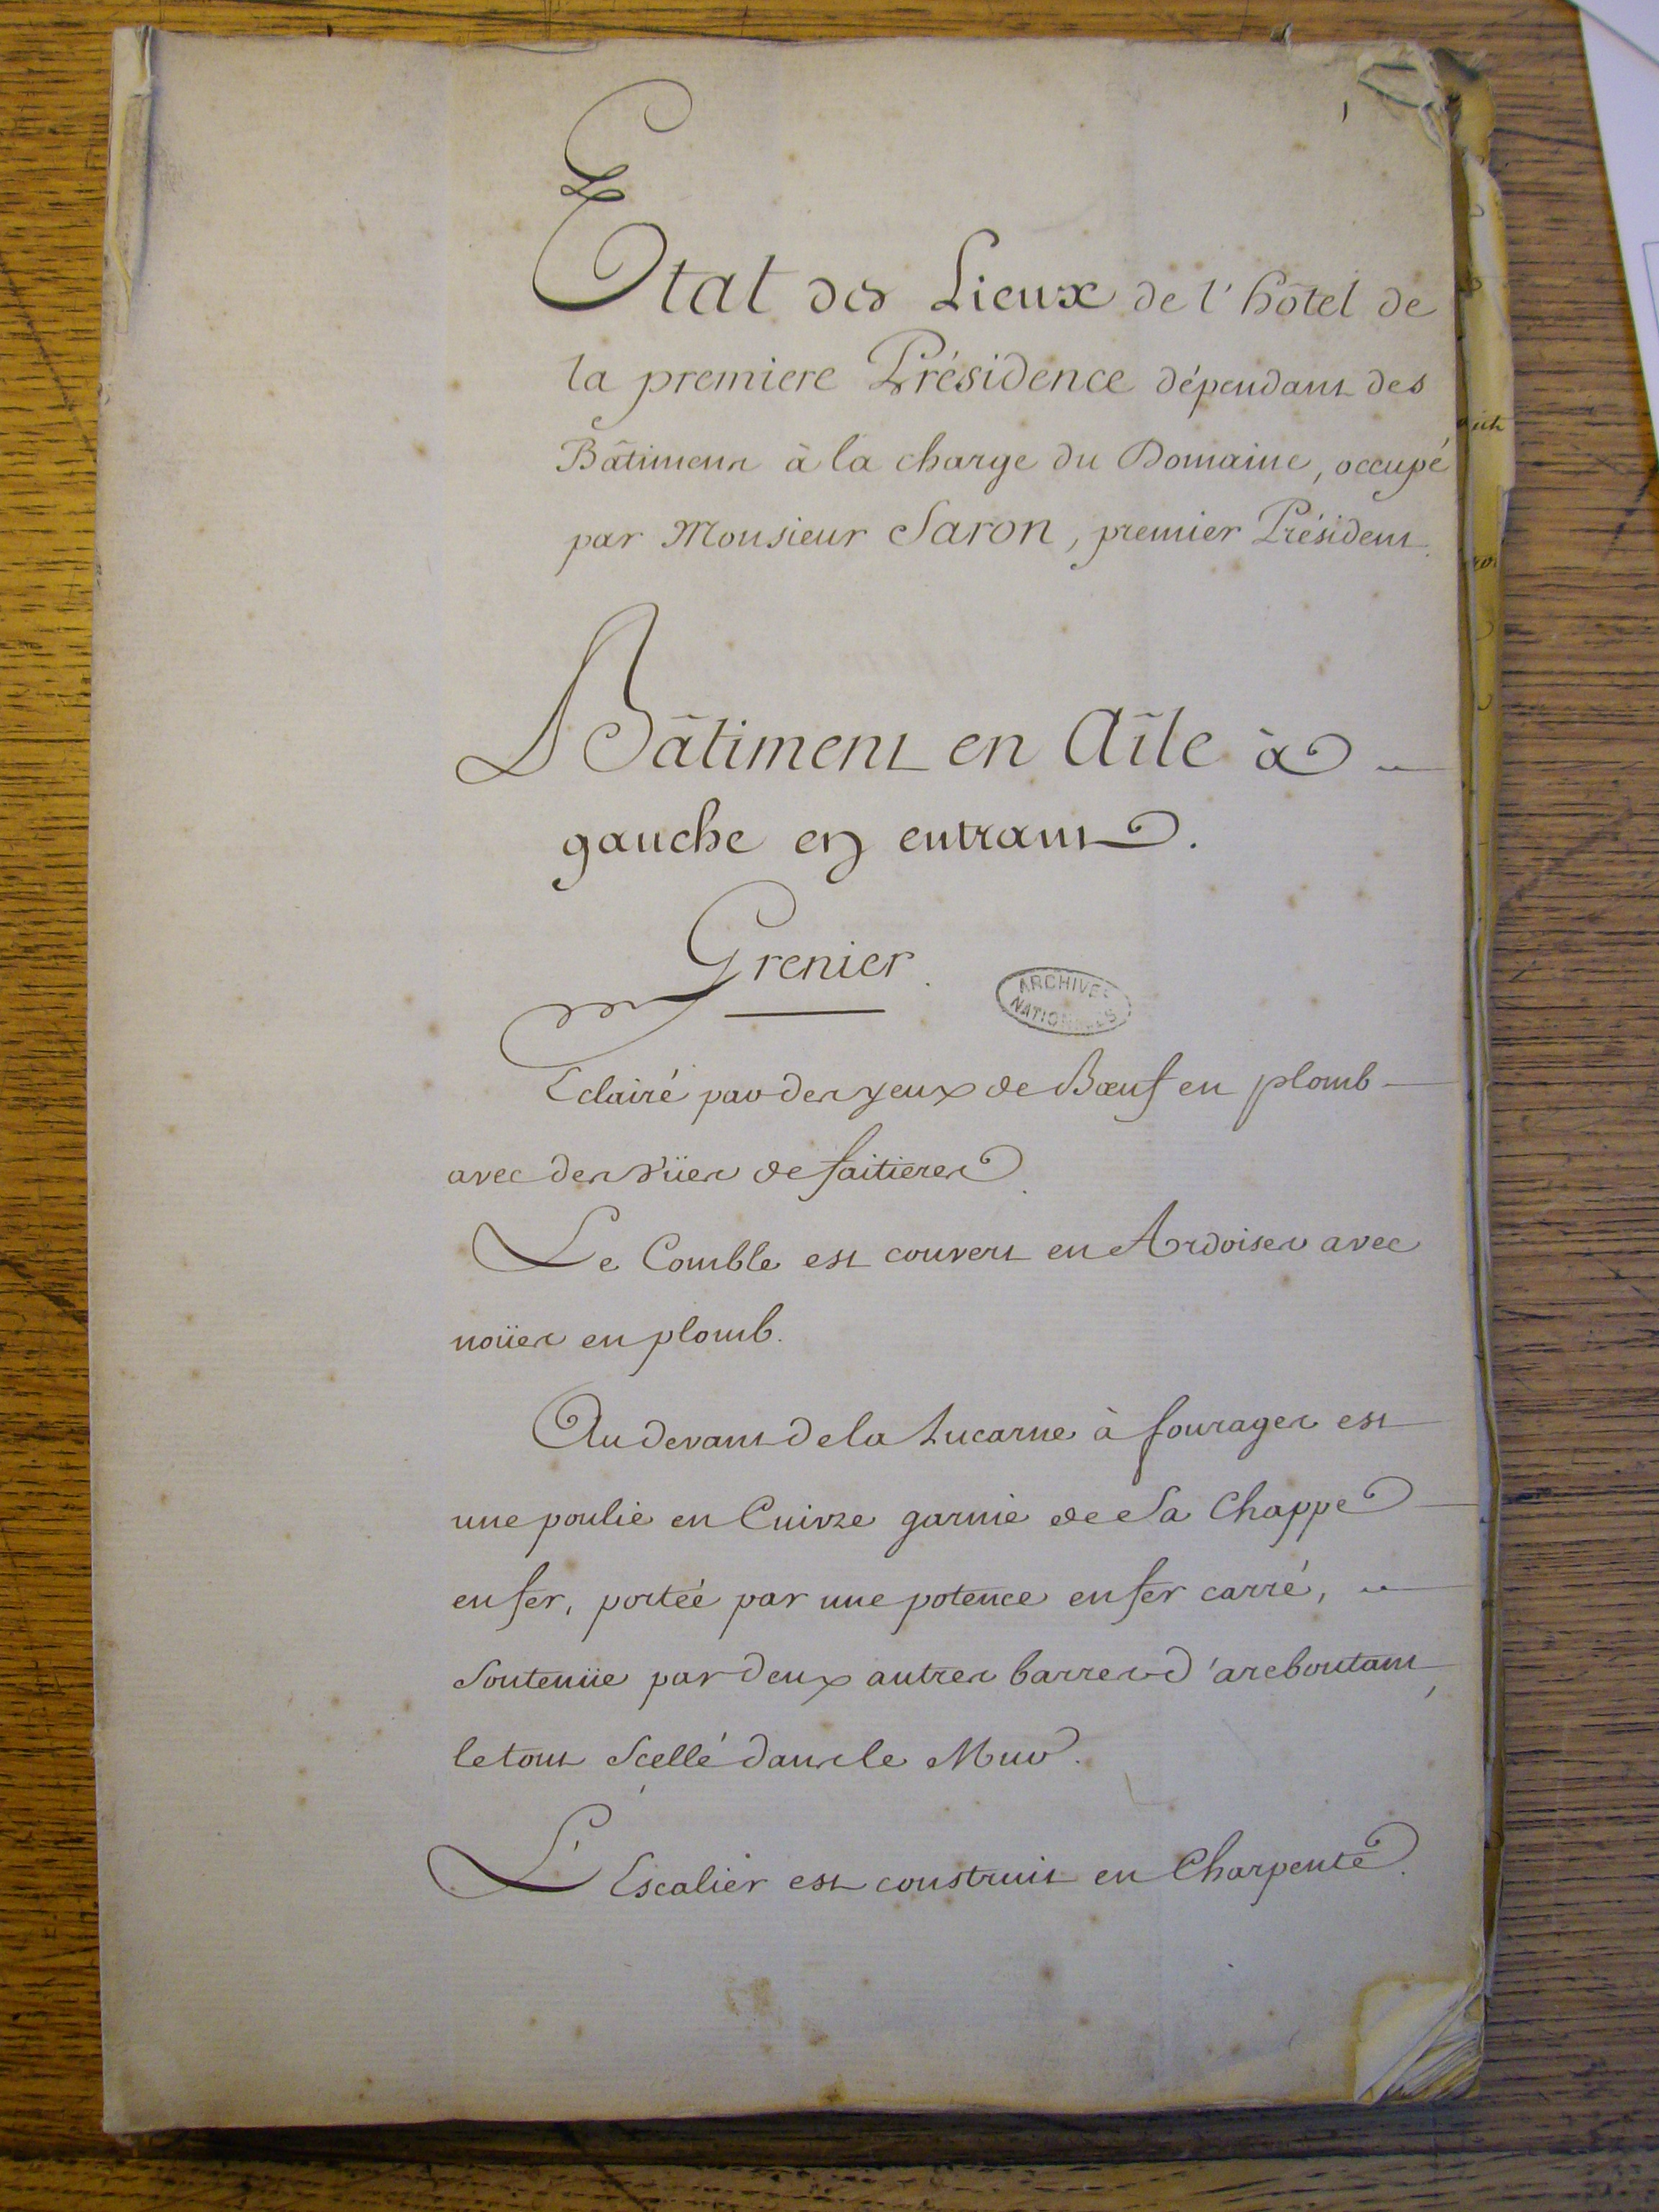 Etat des Lieux de l'hôtel de
la premiere Présidence dépendant des
Bâtimens à la charge du Domaine, occupé
par Monsieur Saron, premier Président.
Bâtiment en Aîle à
gauche en entrant.
Grenier.
ARCHIVES
NATIONALES
Eclairé par des yeux de Bœuf en plomb
avec des vües de faitieres.
Le Comble est couvert en Ardoises avec
noües en plomb.
Au devant de la Lucarne à fourages est
une poulie en Cuivre garnie de Sa Chappe
en fer, portéé par une potence en fer carré,
Soutenüe par deux autres barres d'arcboutant,
le tout Scellé dans le Mur.
L'Escalier est construit en Charpente.